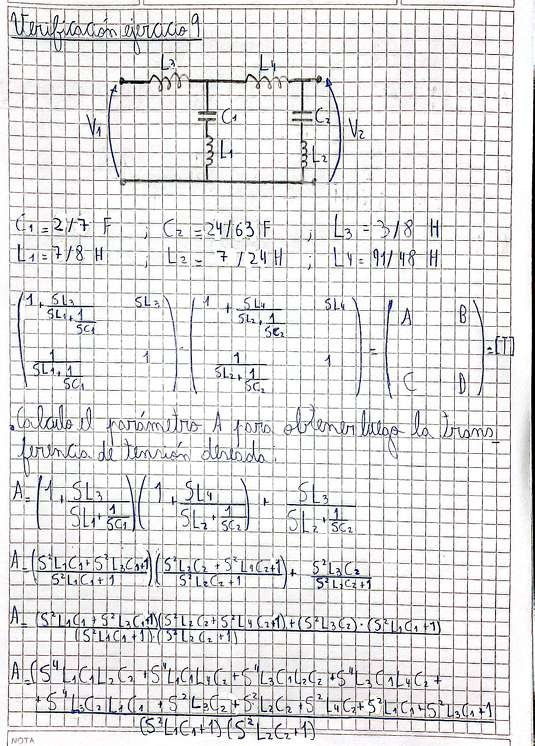 Verificación ejercicio 9
L3 L4
V1 C1 C2 V2
L1 L2
C1 = 2/7 F ; C2 = 24/63 F ; L3 = 3/8 H
L1 = 7/8 H ; L2 = 7/24 H ; L4 = 91/48 H
(1 + SL3/(SL1 + 1/SC1) SL3) (1 + SL4/(SL2 + 1/SC2) SL4) = (A B) = [T]
(1/(SL1 + 1/SC1) 1) · (1/(SL2 + 1/SC2) 1) (C D)
.Calculo el parámetro A para obtener luego la trans-
ferencia de tensión deseada.
A = (1 + SL3/(SL1 + 1/SC1)) (1 + SL4/(SL2 + 1/SC2)) + SL3/(SL2 + 1/SC2)
A = ((S²L1C1 + S²L3C1 + 1)/(S²L1C1 + 1)) ((S²L2C2 + S²L4C2 + 1)/(S²L2C2 + 1)) + S²L3C2/(S²L2C2 + 1)
A = ((S²L1C1 + S²L3C1 + 1)(S²L2C2 + S²L4C2 + 1) + (S²L3C2)·(S²L1C1 + 1))/((S²L1C1 + 1)·(S²L2C2 + 1))
A = (S⁴L1C1L2C2 + S⁴L1C1L4C2 + S⁴L3C1L2C2 + S⁴L3C1L4C2 +
+ S⁴L3C2L1C1 + S²L3C2 + S²L2C2 + S²L4C2 + S²L1C1 + S²L3C1 + 1
(S²L1C1 + 1)(S²L2C2 + 1)
NOTA